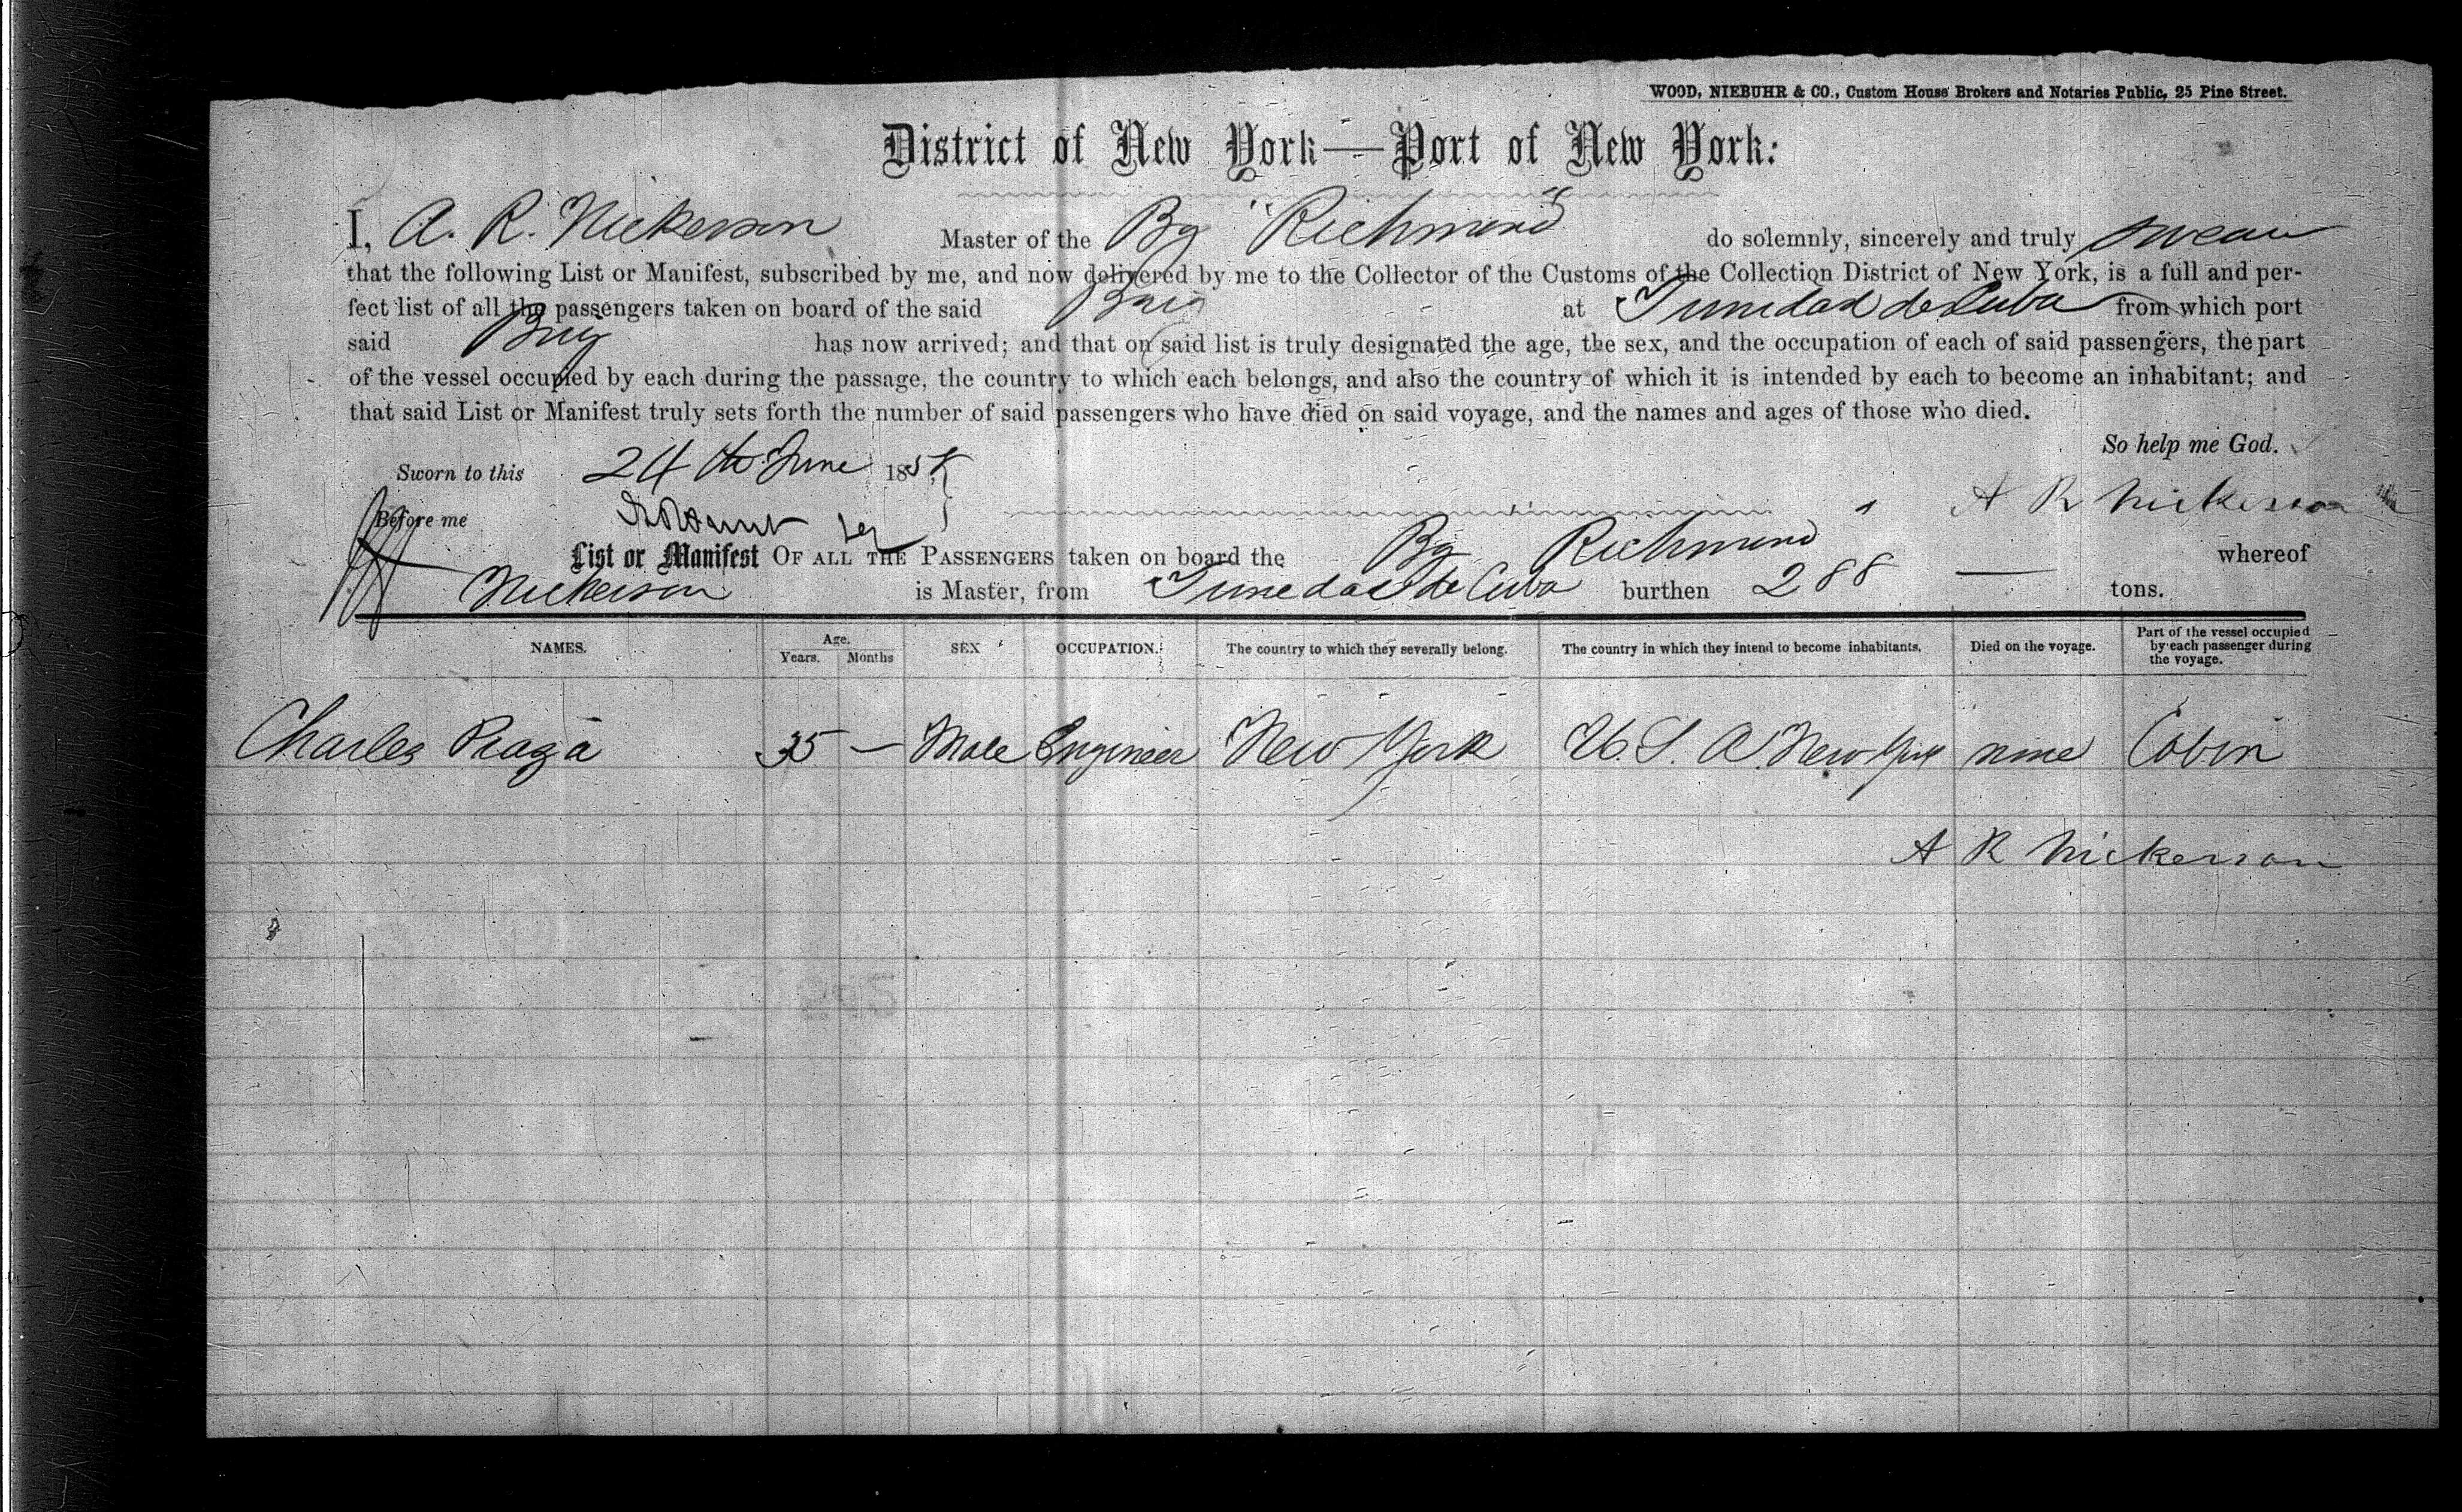 WOOD, NIEBUHR & CO., Custom House Brokers and Notaries Public, 25 Pine Street.
District of New York—Port of New York:
I, A. R. Nickerson Master of the Bg "Richmond" do solemnly, sincerely and truly swear
that the following List or Manifest, subscribed by me, and now delivered by me to the Collector of the Customs of the Collection District of New York, is a full and per-
fect list of all the passengers taken on board of the said Brig at Trinidad de Cuba from which port
said Brig has now arrived; and that on said list is truly designated the age, the sex, and the occupation of each of said passengers, the part
of the vessel occupied by each during the passage, the country to which each belongs, and also the country of which it is intended by each to become an inhabitant; and
that said List or Manifest truly sets forth the number of said passengers who have died on said voyage, and the names and ages of those who died.
So help me God.
Sworn to this 24th June 185
Before me
A R Nickerson
List or Manifest OF ALL THE PASSENGERS taken on board the Bg Richmond whereof
Nickerson is Master, from Trinedad de Cuba burthen 288 — tons.
NAMES. Age. Years. Months SEX OCCUPATION. The country to which they severally belong. The country in which they intend to become inhabitants. Died on the voyage. Part of the vessel occupied by each passenger during the voyage.
Charles 35 — Male Engineer New York U. S. A. New York none Cabin
A R Nickerson